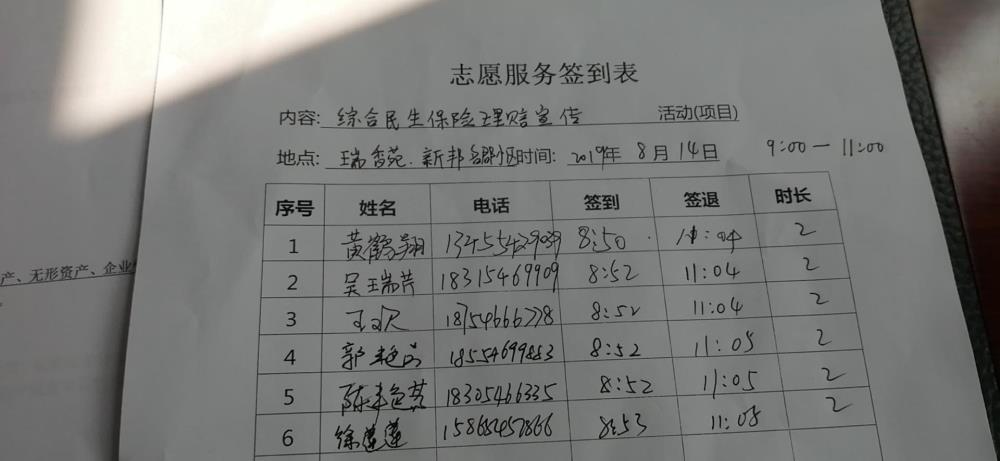 志愿服务签到表
内容: 综合民生保险理赔宣传 活动(项目)
地点: 瑞香苑.新邦 时间: 2019年 8月 14日 9:00 — 11:00
序号 姓名 电话 签到 签退 时长
1 黄鹤翔 8:50 11:04 2
产、无形资产、企业
2 吴瑞芹 18315469909 8:52 11:04 2
3 8:52 11:04 2
4 郭艳 18554699883 8:52 11:05 2
5 陈 18305466335 8:52 11:05 2
6 徐莲莲 8:53 11:05 2